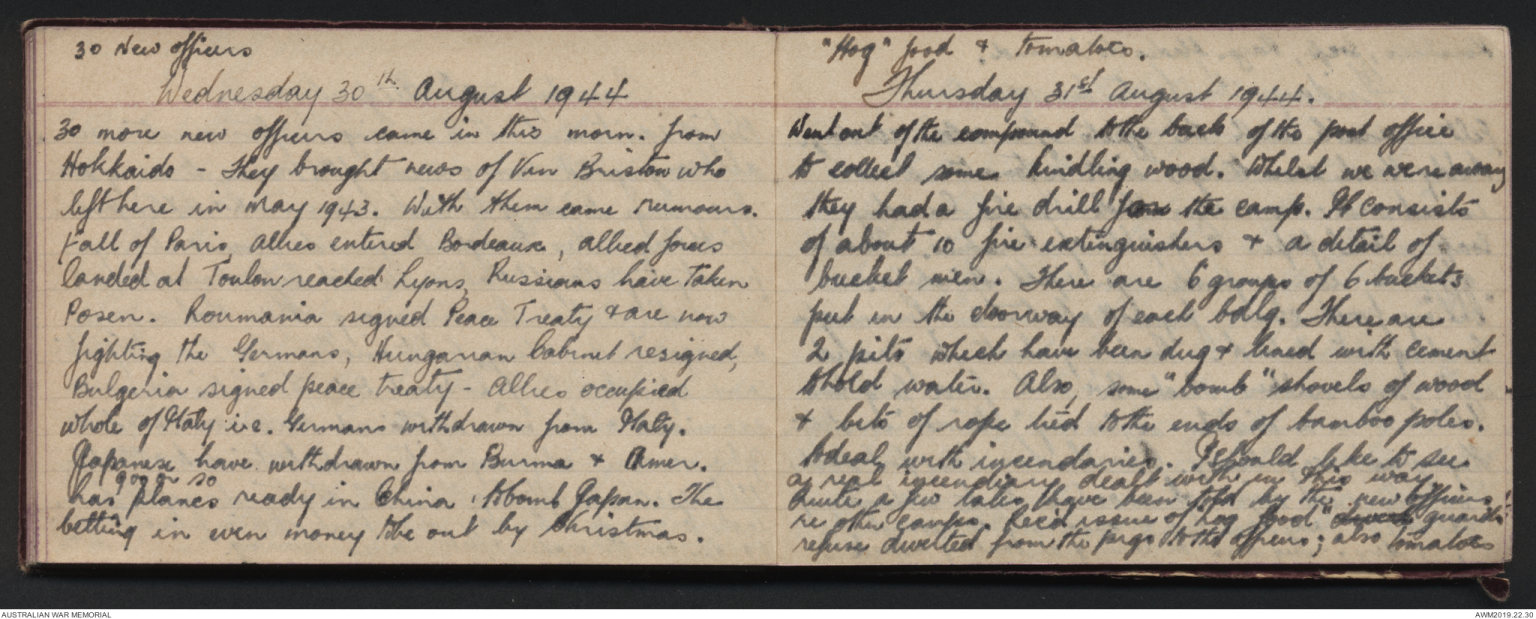 30 New officers
Wednesday 30th August 1944
30 more new officers came in this morn. from
Hokkaido - They brought news of Vin Briston who
left here in May 1943. With them came rumours.
Fall of Paris, Allies entered Bordeaux, allied forces
landed at Toulon reached Lyons, Russians have taken
Posen. Roumania signed Peace Treaty & are now
fighting the Germans, Hungarian Cabinet resigned,
Bulgaria signed peace treaty - Allies occupied
whole of Italy i.e. Germans withdrawn from Italy.
Japanese have withdrawn from Burma & Amer.
has 900 or so planes ready in China to bomb Japan. The
betting in even money to be out by Christmas.
"Hog" food & tomatoes.
Thursday 31st August 1944.
Went out of the compound to the back of the post office
to collect some kindling wood. Whilst we were away
they had a fire drill for the camp. It consists
of about 10 fire extinguishers & a detail of
bucket men. There are 6 groups of 6 buckets
put in the doorway of each bdlg. There are
2 pits which have been dug & lined with cement
to hold water. Also, some "bomb" shovels of wood
& bits of rope tied to the ends of bamboo poles.
to deal with incendiaries. I should like to see
a real incendiary dealt with in this way.
Quite a few tales have been told by the new officers
re other camps. Rec'd issue of "hog food" guards
refuse diverted from the pigs to the officers; also tomatoes
AUSTRALIAN WAR MEMORIAL
AWM2019.22.30